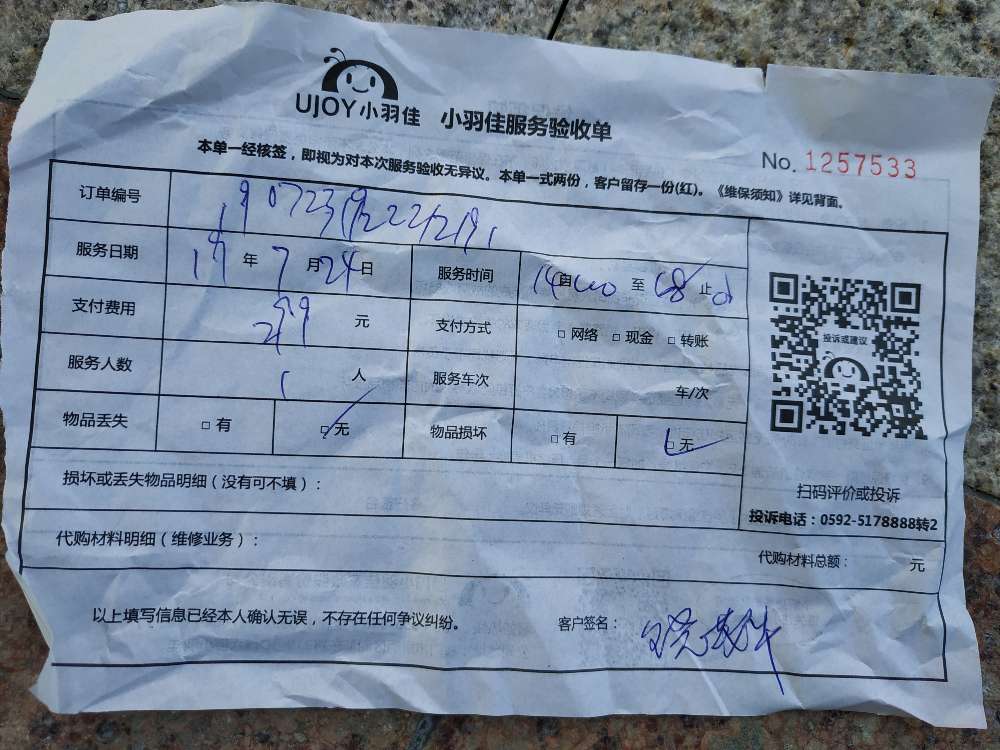 UJOY小羽佳 小羽佳服务验收单
No. 1257533
本单一经核签，即视为对本次服务验收无异议。本单一式两份，客户留存一份(红)。《维保须知》详见背面。
订单编号
服务日期 19 年 7 月 24 日 服务时间 自 至 止
支付费用 299 元 支付方式 □ 网络 □ 现金 □ 转账
服务人数 1 人 服务车次 车/次
物品丢失 □ 有 □ 无 物品损坏 □ 有 □ 无
投诉或建议
扫码评价或投诉
投诉电话：0592-5178888转2
损坏或丢失物品明细（没有可不填）：
代购材料明细（维修业务）： 代购材料总额： 元
以上填写信息已经本人确认无误，不存在任何争议纠纷。 客户签名：